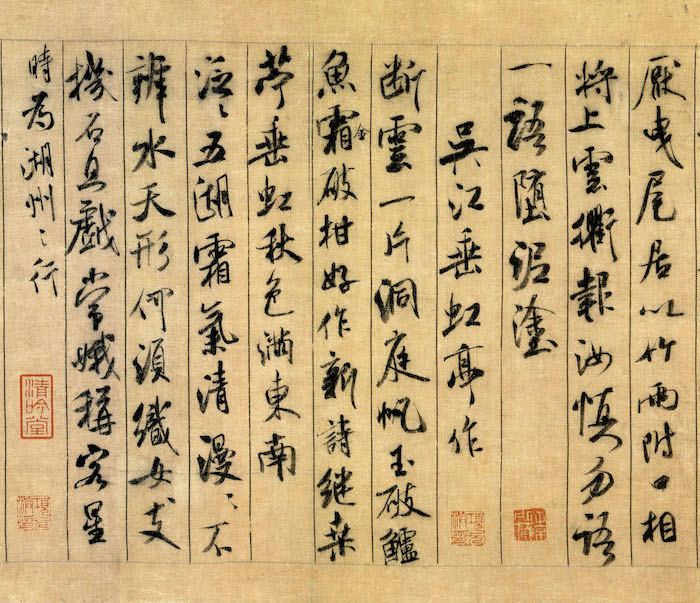 厭曳尾居以竹兩附口相
將上雲衢報汝慎勿語
一語墮泥塗
吳江垂虹亭作
断雲一片洞庭帆玉破鱸
魚霜金破柑好作新詩継桒
苧垂虹秋色滿東南
泛〻五湖霜氣清漫〻不
辨水天形何須織女支
機石且戲常娥稱客星
時為湖州之行
清吟堂